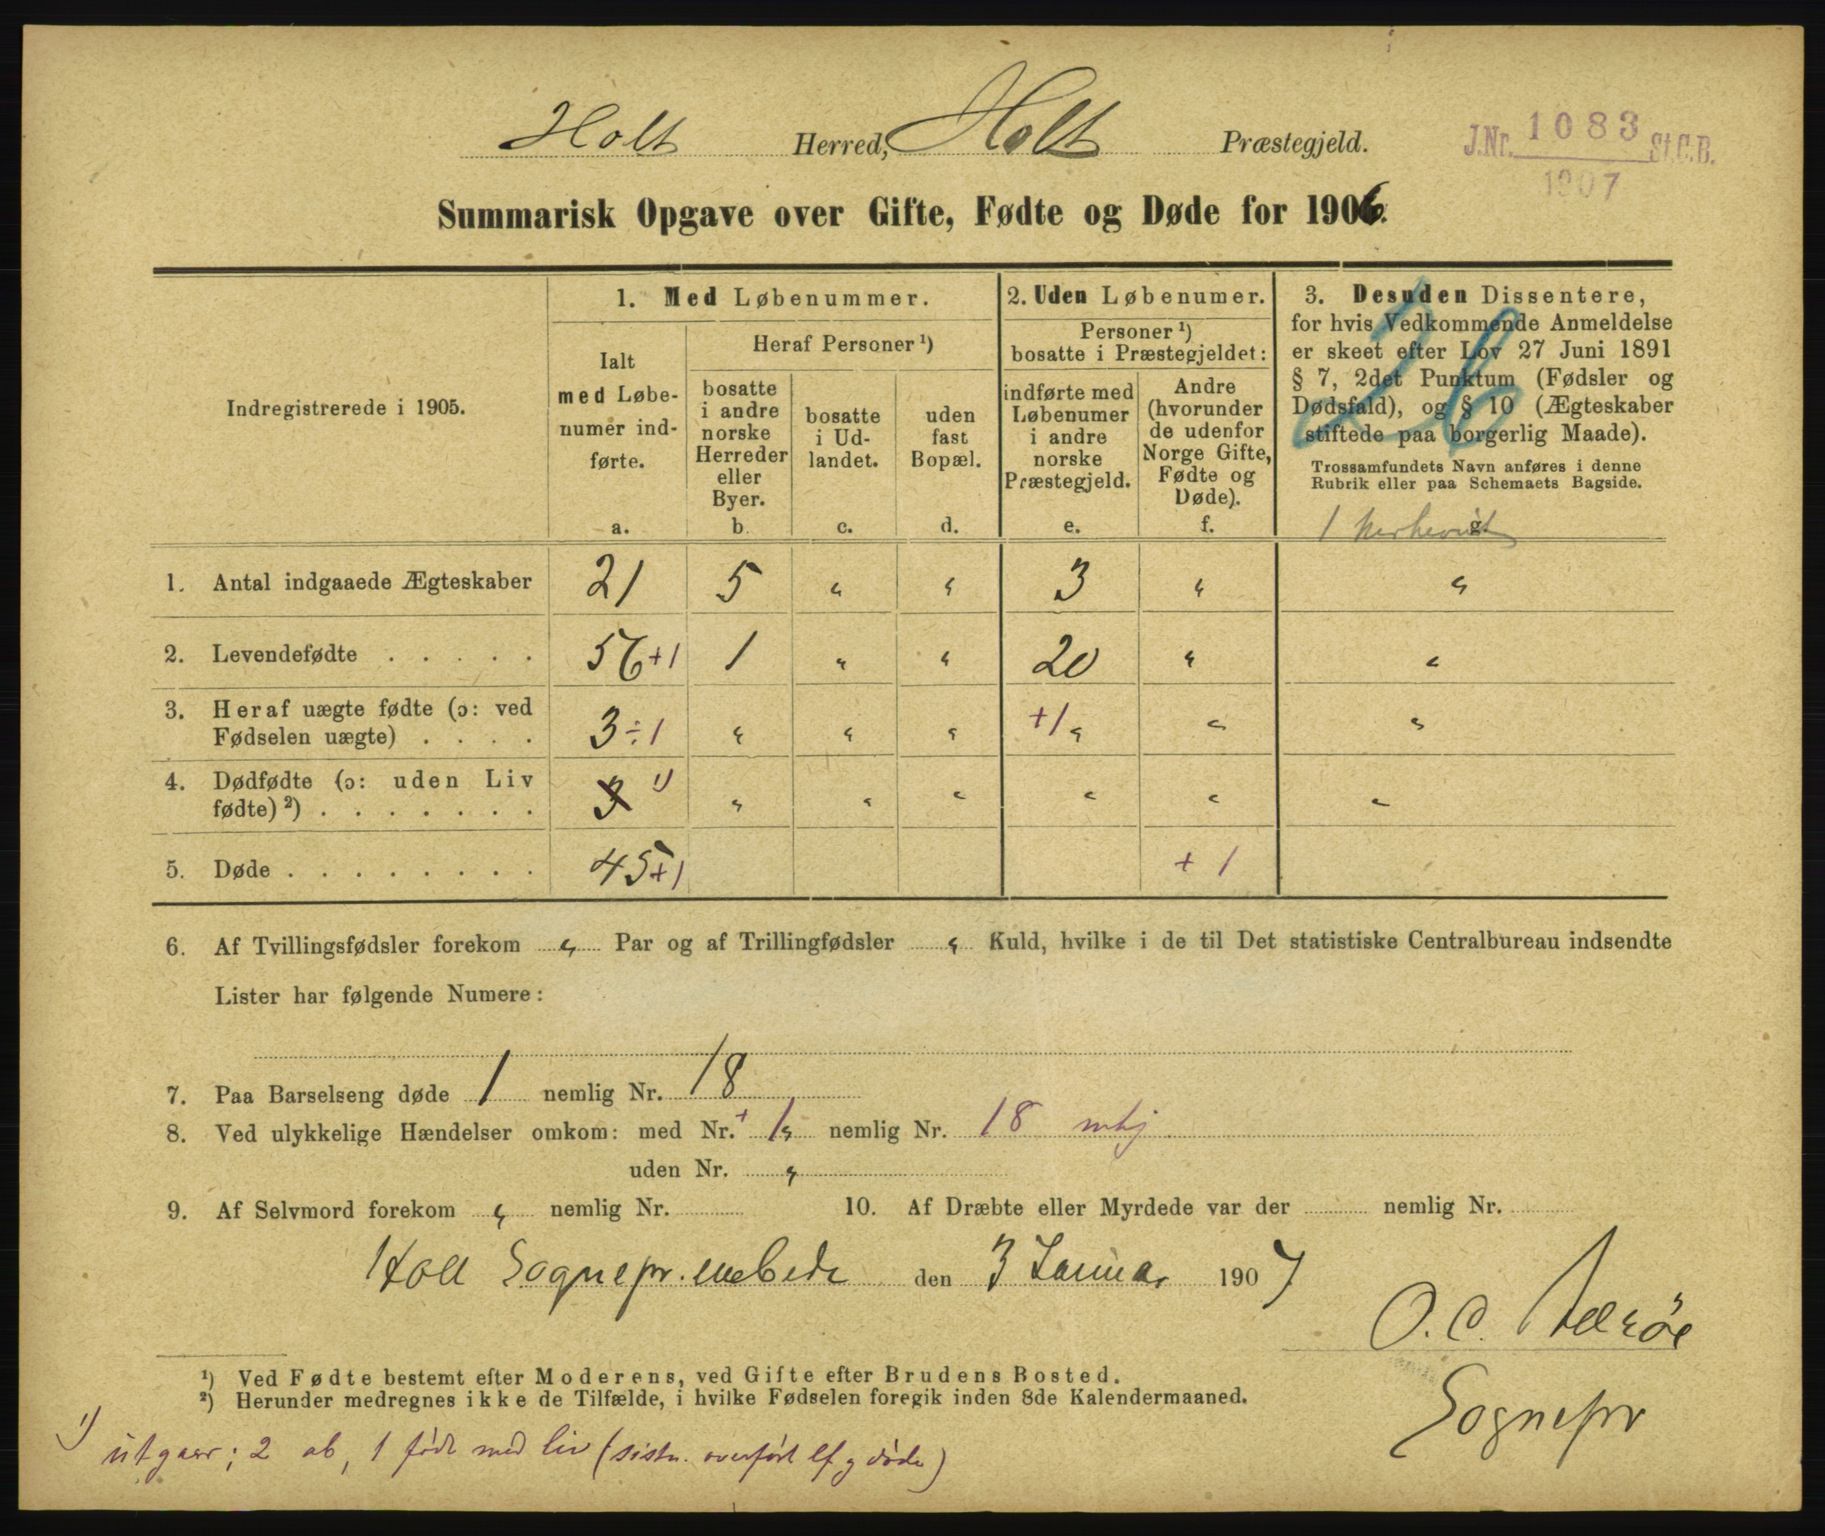 Holt Herred, Holt Præstegjeld.
J.Nr. 1083 St.C.B.
1907
Summarisk Opgave over Gifte, Fødte og Døde for 1906.
Indregistrerede i 1905.
1. Med Løbenummer.
Ialt
med Løbe-
numer ind-
førte.
a.
Heraf Personer ¹)
bosatte
i andre
norske
Herreder
eller
Byer.
b.
bosatte
i Ud-
landet.
c.
uden
fast
Bopæl.
d.
2. Uden Løbenumer.
Personer ¹)
bosatte i Præstegjeldet:
indførte med
Løbenumer
i andre
norske
Præstegjeld.
e.
Andre
(hvorunder
de udenfor
Norge Gifte,
Fødte og
Døde).
f.
3. Desuden Dissentere,
for hvis Vedkommende Anmeldelse
er skeet efter Lov 27 Juni 1891
§ 7, 2det Punktum (Fødsler og
Dødsfald), og § 10 (Ægteskaber
stiftede paa borgerlig Maade).
26
Trossamfundets Navn anføres i denne
Rubrik eller paa Schemaets Bagside.
g.
1
1. Antal indgaaede Ægteskaber 21 5 " " 3 " "
2. Levendefødte . . . . . 56 +1 1 " " 20 " "
3. Heraf uægte fødte (ɔ: ved
Fødselen uægte) . . . . 3 ÷1 " " " +1 " " "
4. Dødfødte (ɔ: uden Liv
fødte) ²) . . . . . . . 3 ¹) " " " " " "
5. Døde . . . . . . . . 45 +1 + 1
6. Af Tvillingsfødsler forekom " Par og af Trillingfødsler " Kuld, hvilke i de til Det statistiske Centralbureau indsendte
Lister har følgende Numere:
7. Paa Barselseng døde 1 nemlig Nr. 18
8. Ved ulykkelige Hændelser omkom: med Nr. + 1 " nemlig Nr. 18 mkj
uden Nr. "
9. Af Selvmord forekom " nemlig Nr. 10. Af Dræbte eller Myrdede var der nemlig Nr.
Holt Sognepr.embede den 3 Januar 1907
O. C.
Sognepr
¹) Ved Fødte bestemt efter Moderens, ved Gifte efter Brudens Bosted.
²) Herunder medregnes ikke de Tilfælde, i hvilke Fødselen foregik inden 8de Kalendermaaned.
¹) utgaar; 2 ab, 1 født med liv (sistn. overført lf og døde)